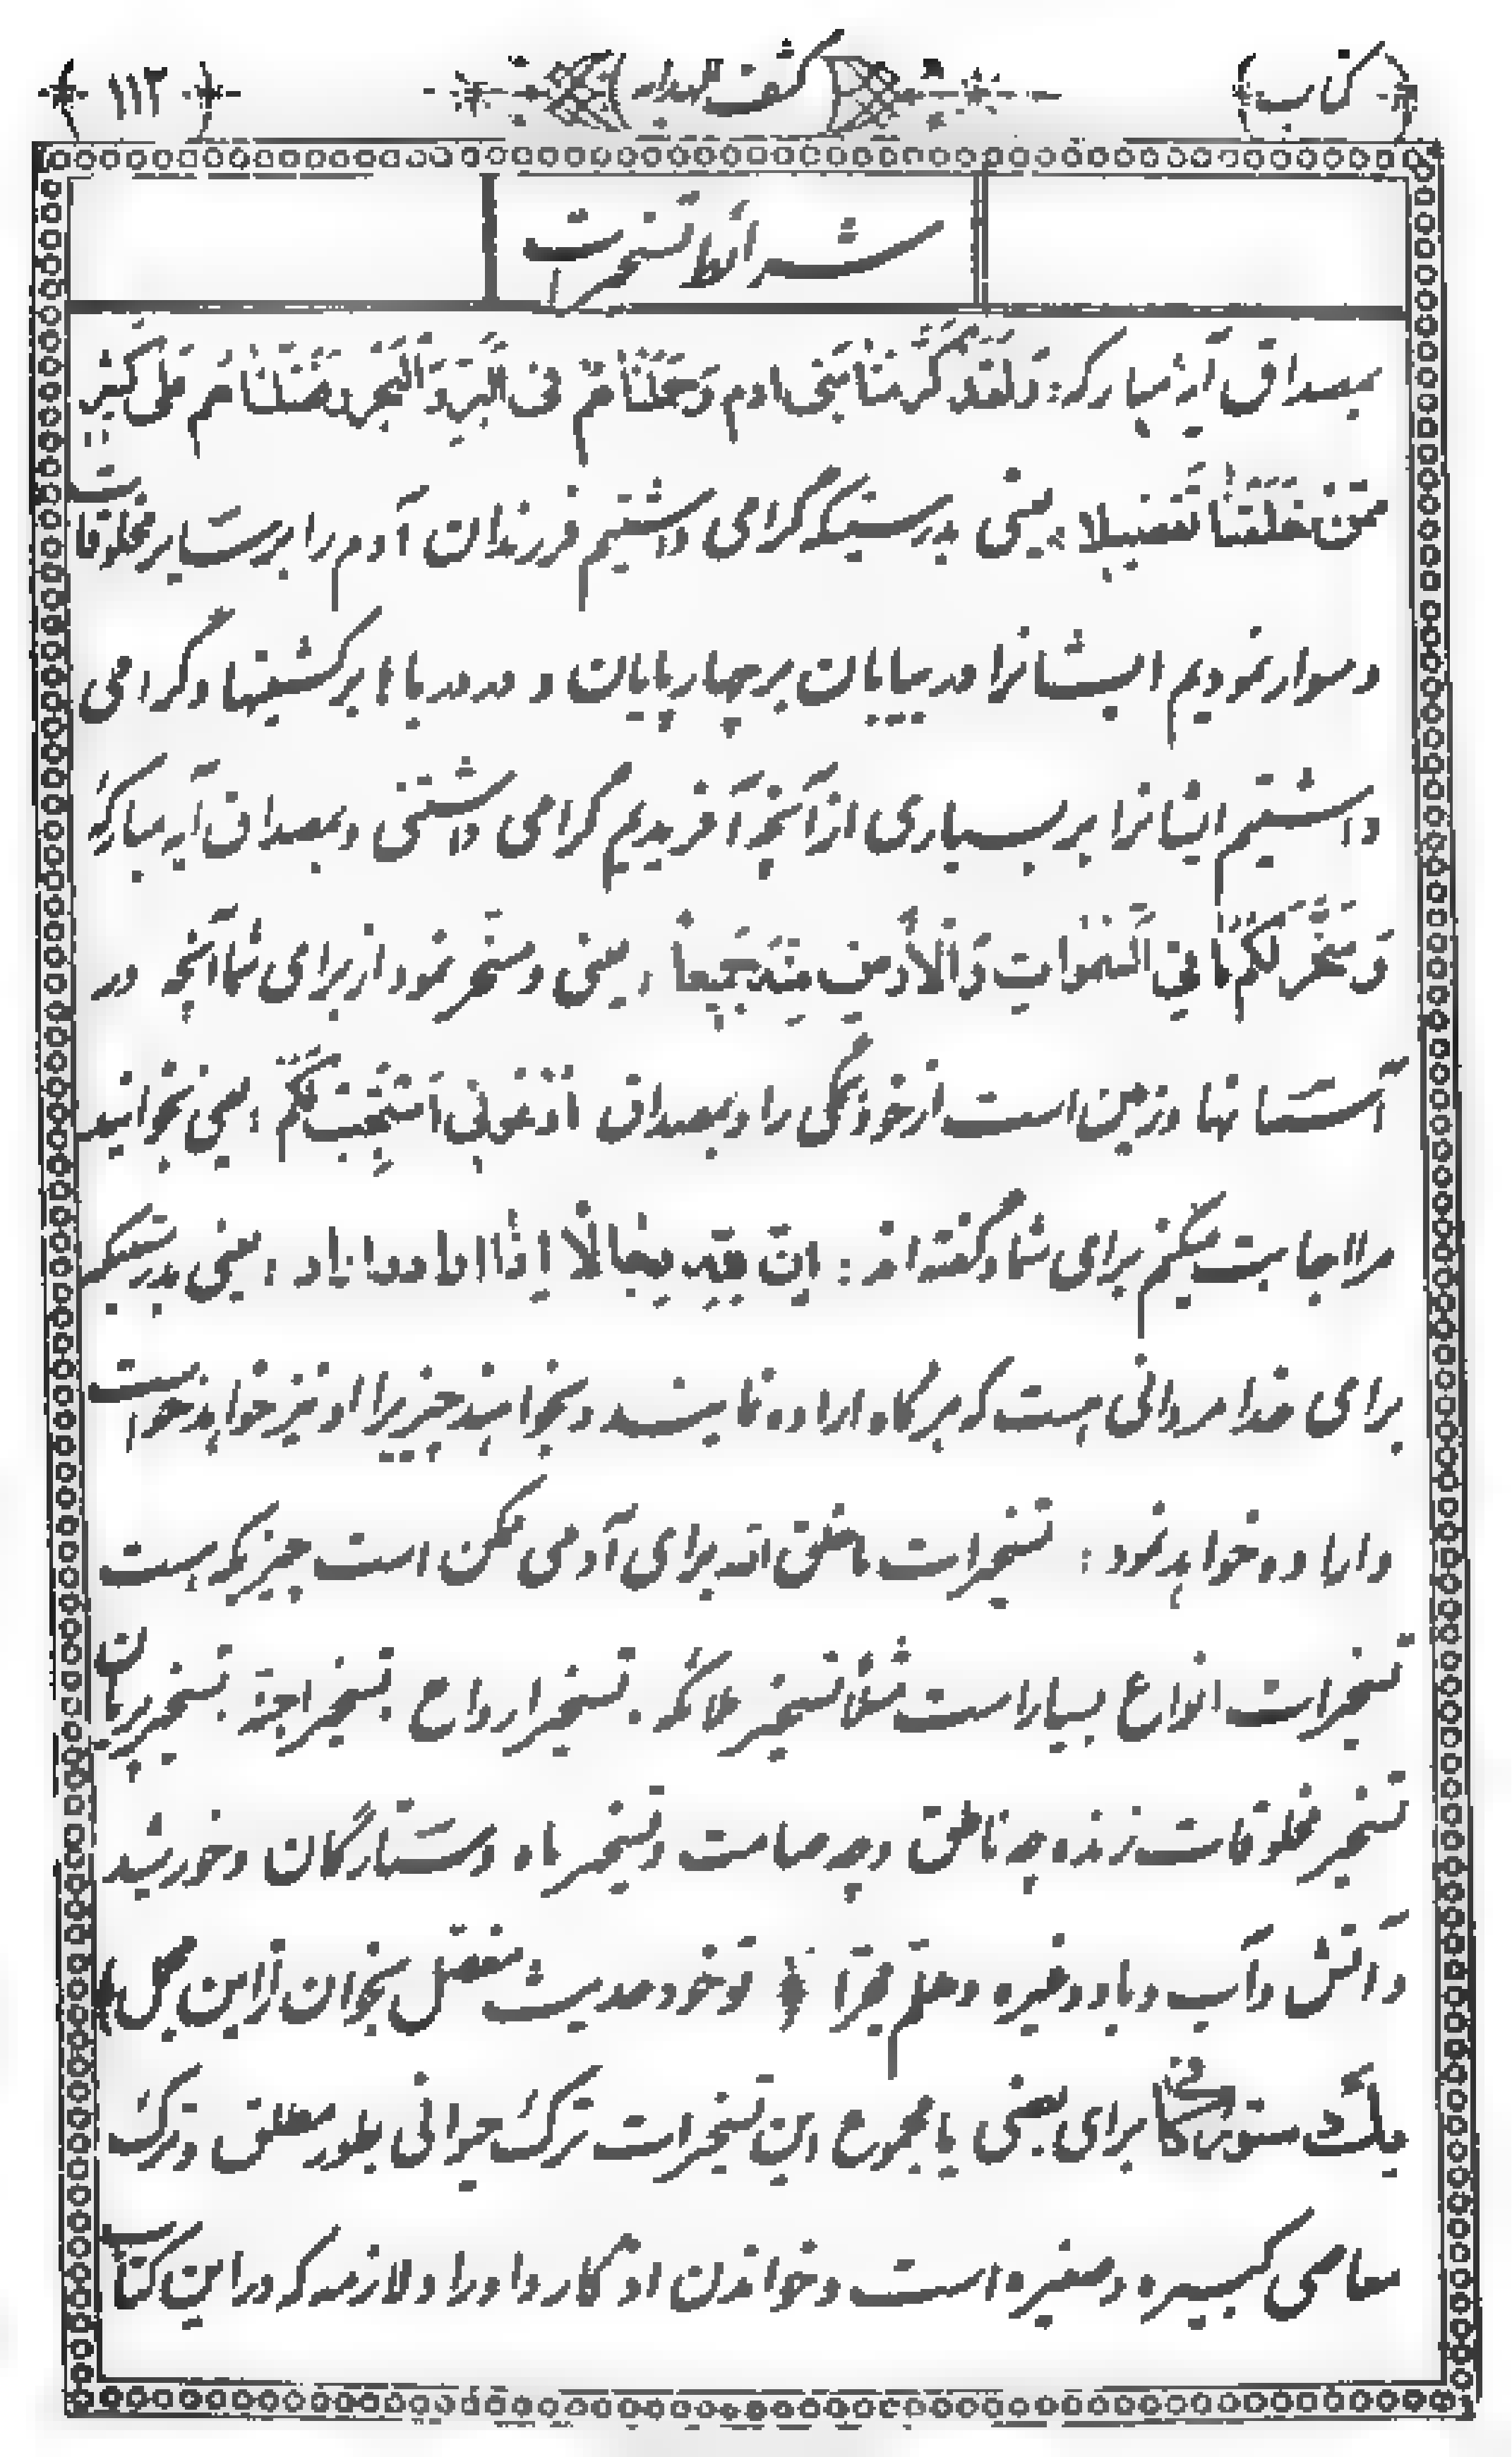 کتاب کشف الهدایه ۱۱۲
شرائط تسخیرات
بمصداق آیهٔ مبارکه: وَلَقَدْ كَرَّمْنَا بَنِي ادم وَحَمَلْنَاهُمْ فِي الْبَرِّ وَالْبَحْرِ وَفَضَّلْنَاهُمْ عَلَى كَثِيرٍ
مِّمَّنْ خَلَقْنَا تَفْضِيلًا. یعنی بدرستیکه گرامی داشتیم فرزندان آدم را بر سایر مخلوقات
و سوار نمودیم ایشانرا در بیابان بر چهارپایان و در دریاها بر کشتیها و گرامی
داشتیم ایشانرا بر بسیاری از آنچه آفریدیم گرامی داشتنی و بمصداق آیه مبارکهٔ
وَسَخَّرَ لَكُمْ مَا فِي السَّمٰوَاتِ وَالْأَرْضِ مِنْهُ جَمِيعاً، یعنی و مسخر نمود از برای شما آنچه در
آستمانها و زمین است از خود همگی را و بمصداق اُدْعُونِي اَسْتَجِبْ لَكُمْ: یعنی بخوانید
مرا اجابت میکنم برای شما و گفته اند: اِنَّ لِلّٰهِ رِجَالًا اِذَا ارادوا اراد: یعنی بدرستیکه
برای خدا مردانی هست که هرگاه اراده نمایند و بخواهند چیزیرا او نیز خواهد خواست
و اراده خواهد نمود: تسخیرات ما خلق الله برای آدمی ممکن است چیزیکه هست
تسخیرات انواع بسیار است مثلاً تسخیر ملائکه. تسخیر ارواح. تسخیر اجنّه. تسخیر پریان
تسخیر مخلوقات زنده چه ناطق و چه صامت و تسخیر ماه و ستارگان و خورشید
و اتش و آب و باد و غیره و هلمّ جرّا ﴿ تو خود حدیث مفصّل بخوان از این مجمل ﴾
یکی برای بعضی یا مجموع این تسخیرات ترک حیوانی بطور مطلق و ترک
معاصی کبیره و صغیره است و خواندن اذکار و اوراد لازمه که در این کتاب